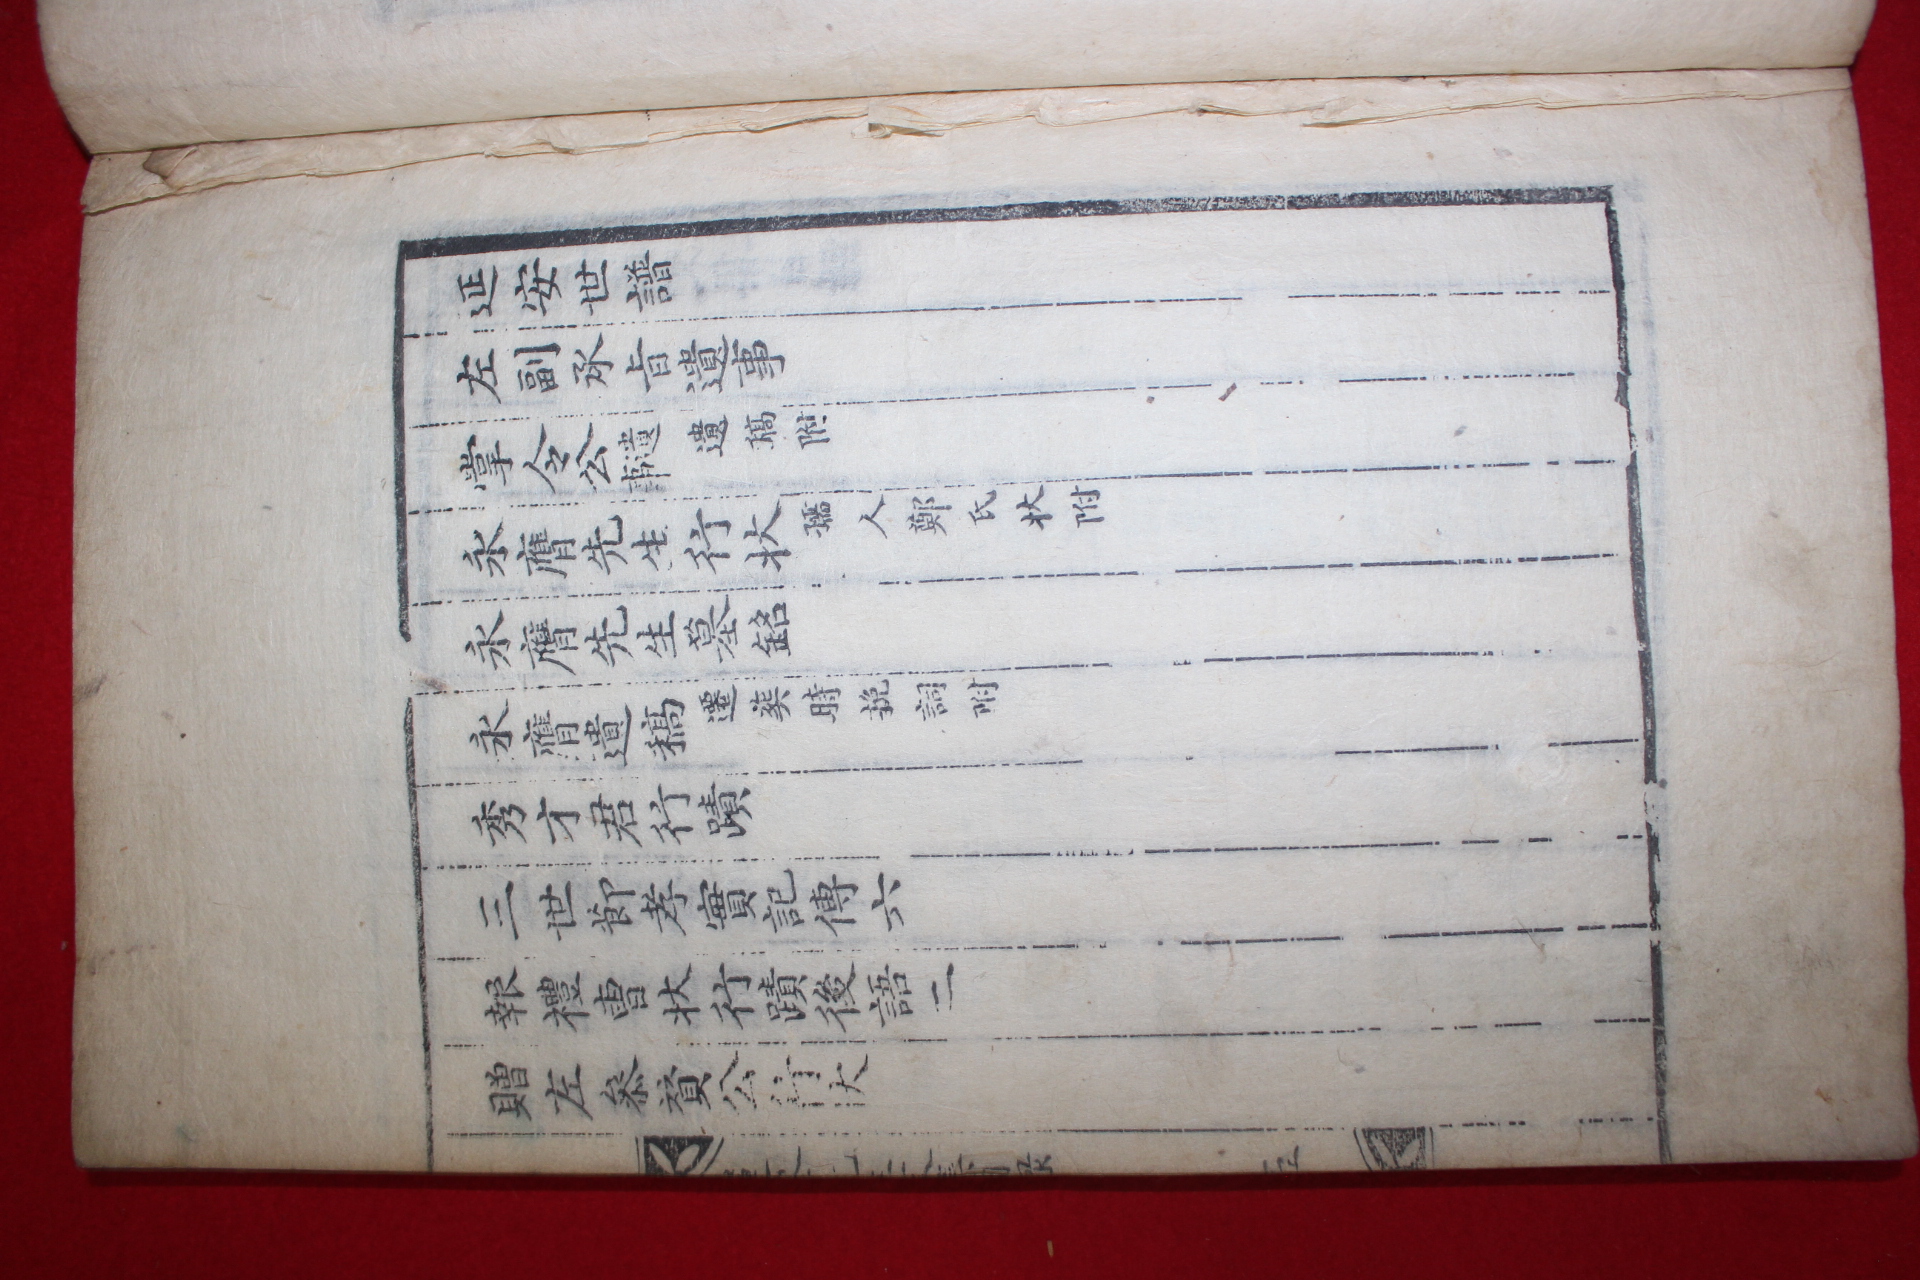 延安世譜
左副承旨遺事
掌令公遺事 遺稿附
永膺先生行狀 孺人鄭氏狀附
永膺先生墓銘
永膺遺稿 遷葬時挽詞附
秀才君行蹟
三世節孝實記傳六
報禮曹狀行蹟後語二
贈左參贊公行狀